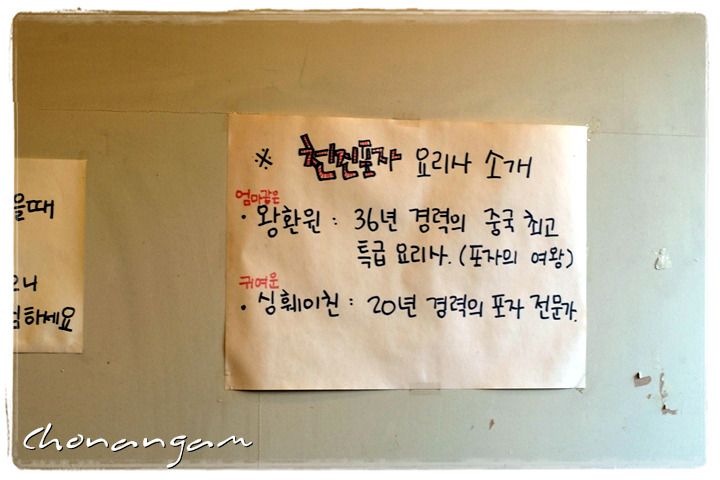 ※ 천진포자 요리사 소개
엄마같은
· 왕환원 : 36년 경력의 중국 최고
특급 요리사. (포자의 여왕)
귀여운
· 싱훼이친 : 20년 경력의 포자 전문가.
을때
오니
하세요
Chonangam